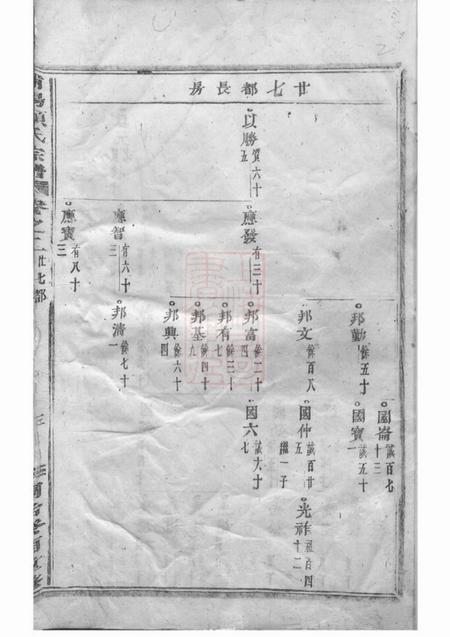 廿七都長房
以勝 質六十五
應發 有三十
應智 有六十三
應寶 有八十三
邦勳 餘五十
邦文 餘百八
邦富 餘二十四
邦有 餘三十七
邦基 餘四十九
邦興 餘六十四
邦濟 餘七十一
國崙 誠百七十三
國寶 誠五十一
國仲 誠百廿五 繼一子
國六 誠六十七
光祚 祖百四十二
氏宗譜 卷之二 廿七都 三